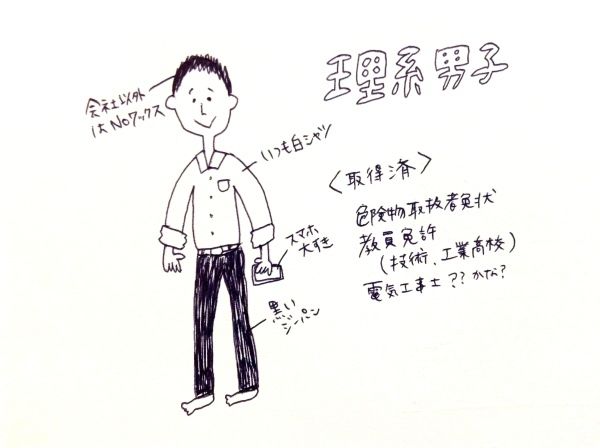 理系男子
会社以外
はNoワックス
いつも白シャツ
スマホ
大すき
黒い
ジーパン
<取得済>
危険物取扱者免状
教員免許
(技術、工業高校)
電気工事士??かな?